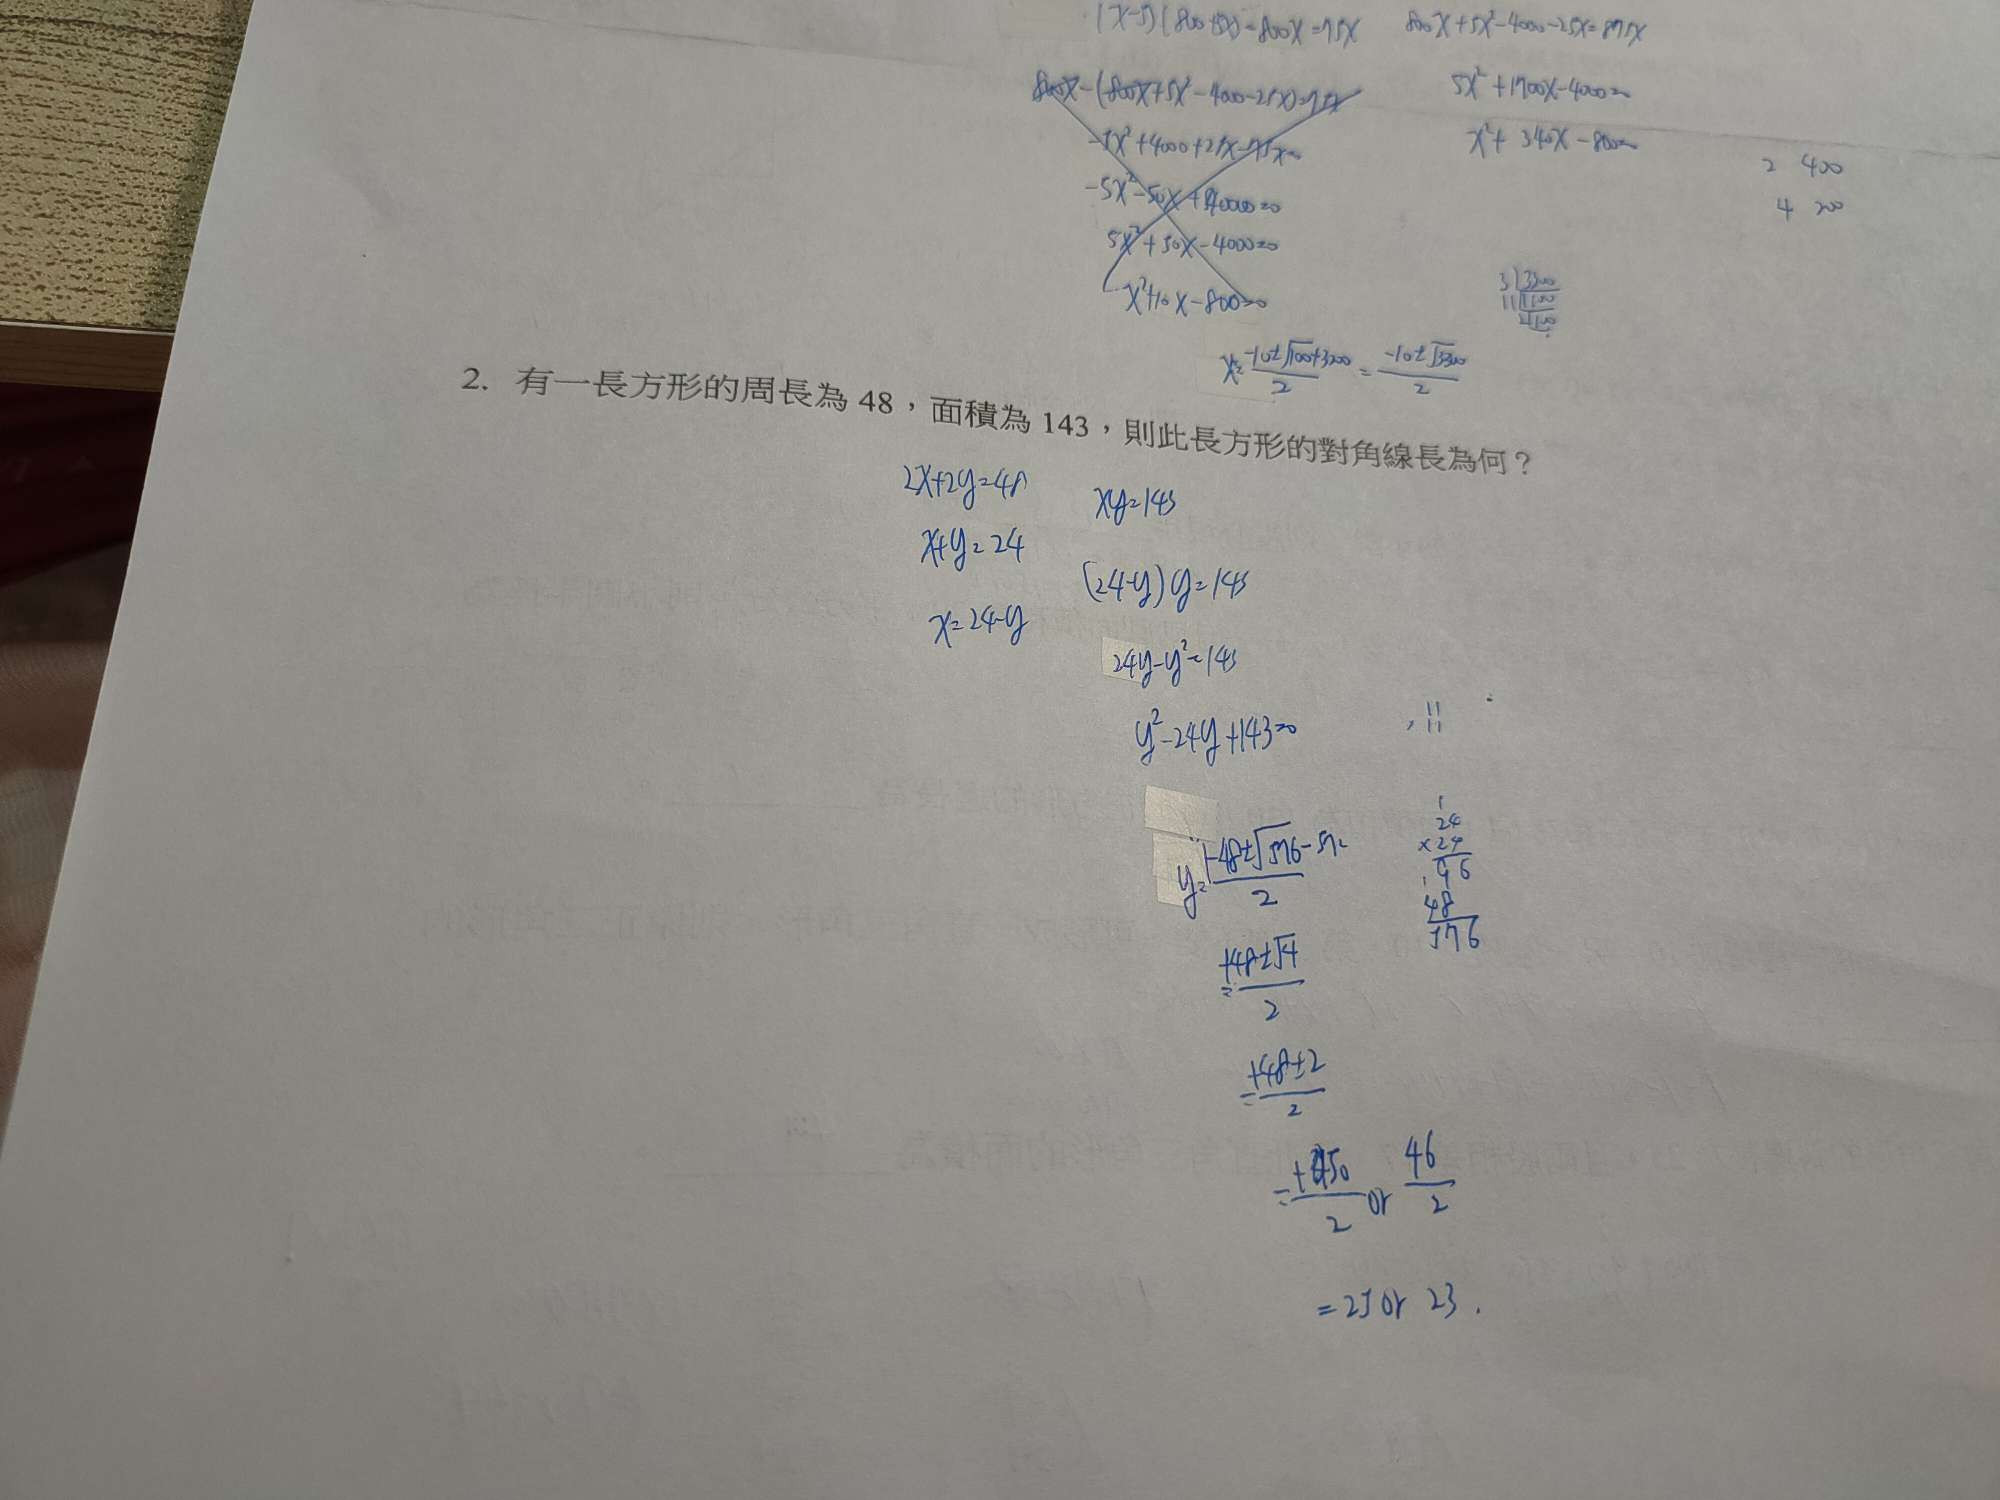 (x-5)(800+5x)-800x=75x
800x+5x²-4000-25x=875x
800x-(800x+5x²-4000-25x)=75x
5x²+1700x-4000=0
-5x²+4000+25x-75x=0
x²+340x-800=0
2 400
-5x²-50x+4000=0
4 200
5x²+50x-4000=0
x²+10x-800=0
3)3300
11)1100
100
x=(-10±√100+3200)/2 = (-10±√3300)/2
2. 有一長方形的周長為 48，面積為 143，則此長方形的對角線長為何？
2x+2y=48
xy=143
x+y=24
(24-y)y=143
x=24-y
24y-y²=143
y²-24y+143=0
11
11
y=(-48±√576-572)/2
1
24
×24
96
48
576
=(+48±√4)/2
=(+48±2)/2
=+50/2 or 46/2
=25 or 23.